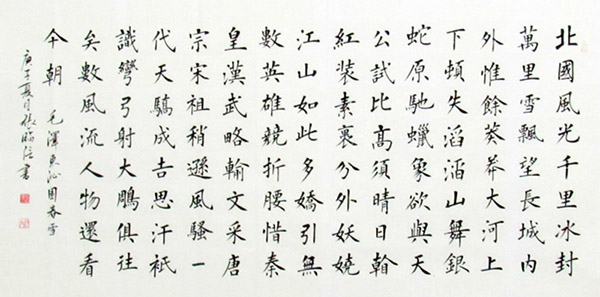 北國風光千里冰封
萬里雪飄望長城內
外惟餘莽莽大河上
下頓失滔滔山舞銀
蛇原馳蠟象欲與天
公試比高須晴日看
紅装素裹分外妖嬈
江山如此多嬌引無
數英雄競折腰惜秦
皇漢武略輸文采唐
宗宋祖稍遜風騷一
代天驕成吉思汗祇
識彎弓射大鵰俱往
矣數風流人物還看
今朝
毛澤東沁園春雪
庚子夏月張臨書